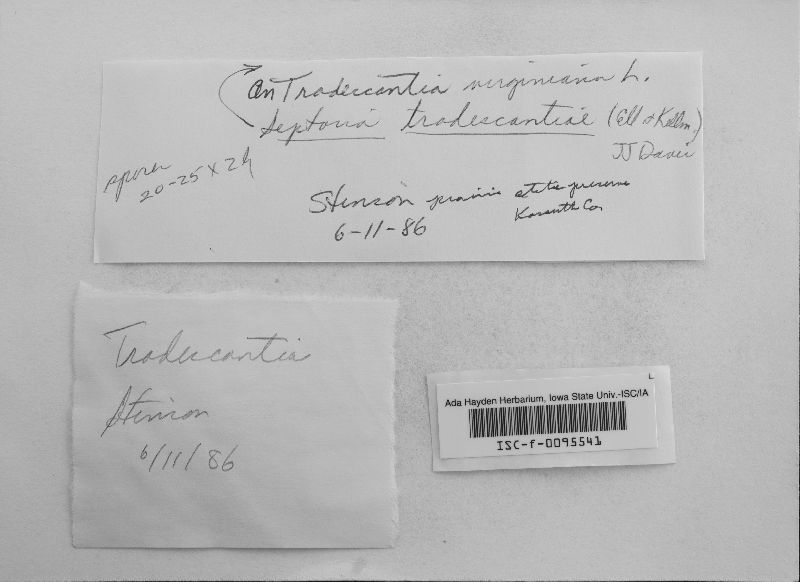 on Tradescantia virginiana L.
Septoria tradescantiae (Ell & Kellm.)
JJ Davis
spores
20-25 x 2
Stinson prairie state preserve
Kossuth Co.
6-11-86
Tradescantia
Stinson
6/11/86
L
Ada Hayden Herbarium, Iowa State Univ.-ISC/IA
ISC-f-0095541